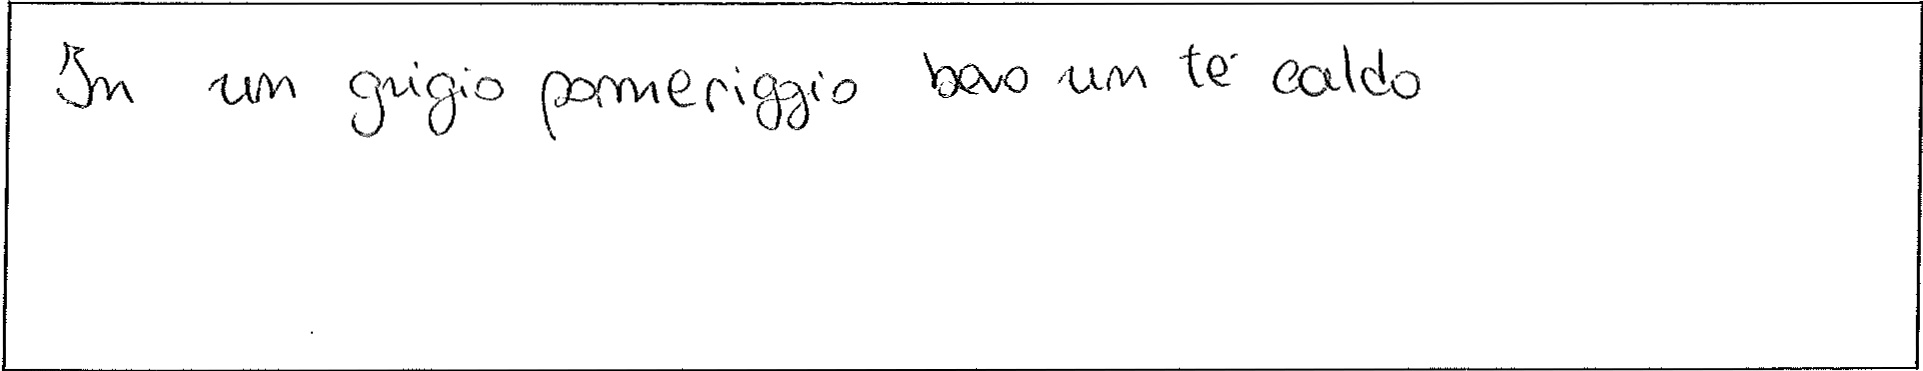 In un grigio pomeriggio bevo un tè caldo